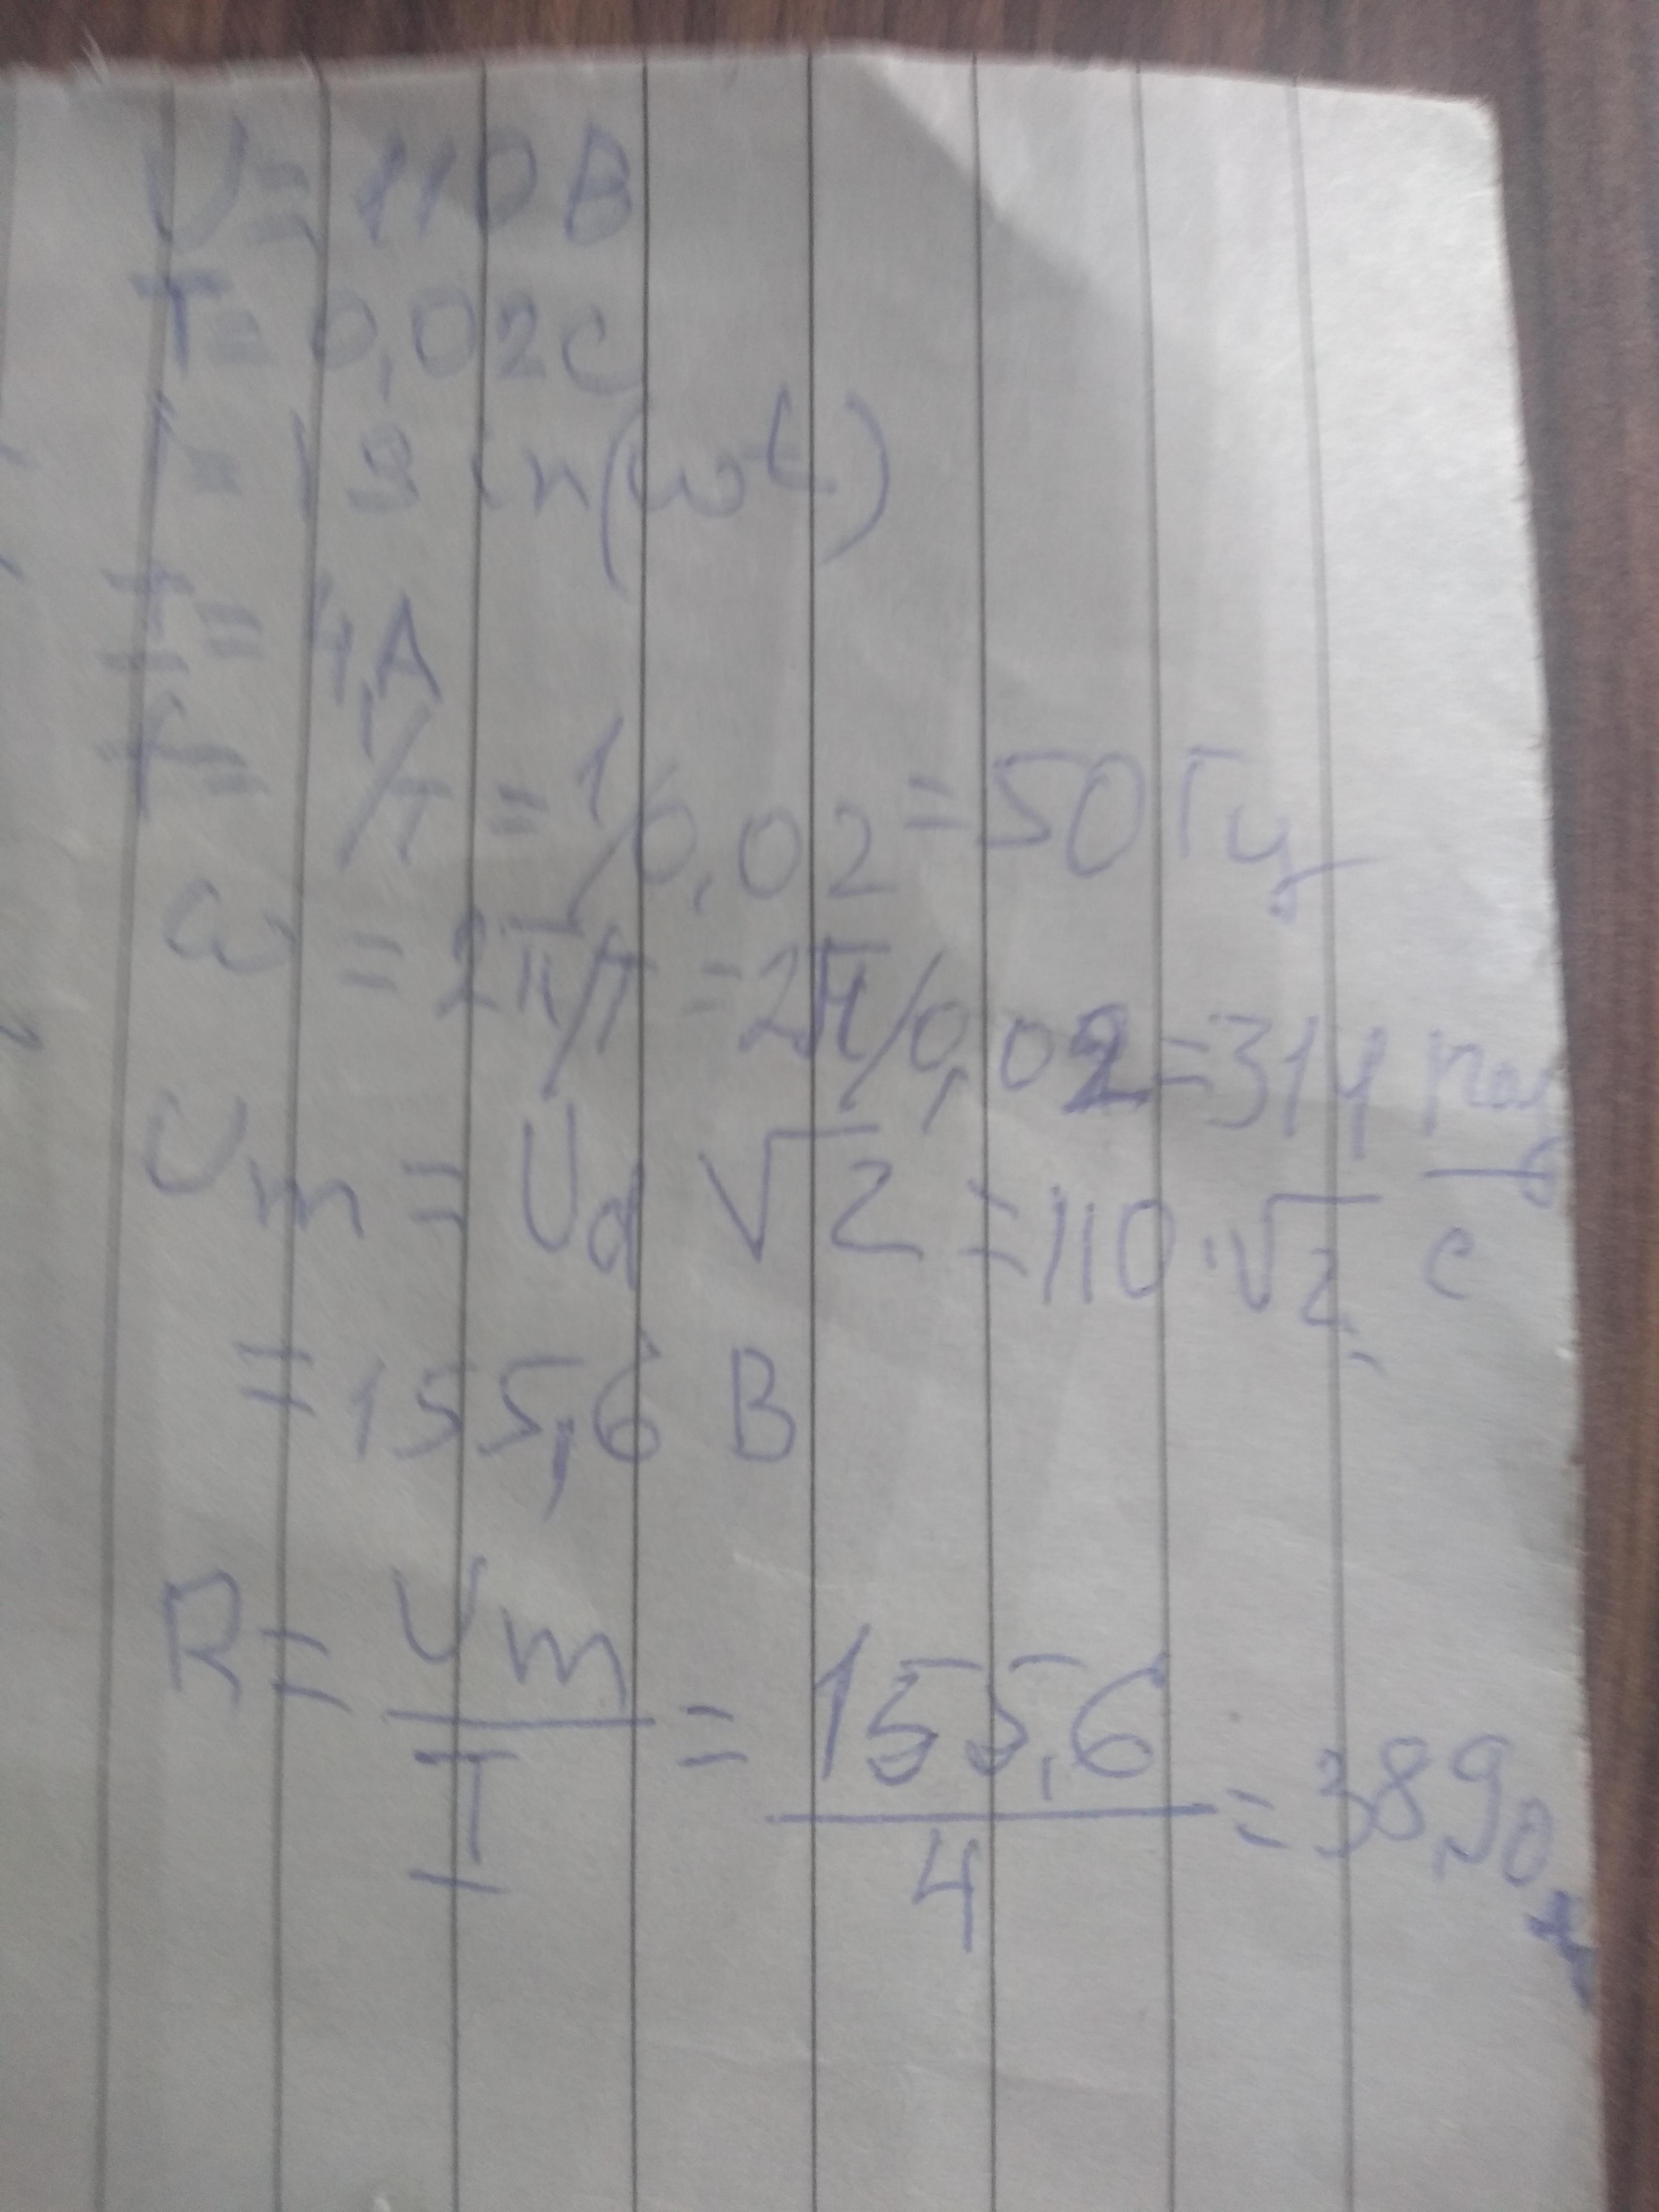 U = 110 В
T = 0,02 с
i = I sin(ωt)
I = 4 А
f = 1/T = 1/0,02 = 50 Гц
ω = 2π/T = 2π/0,02 = 314 рад/с
Um = Ud √2 = 110 · √2
= 155,6 В
R = Um/I = 155,6/4 = 38,9 Ом